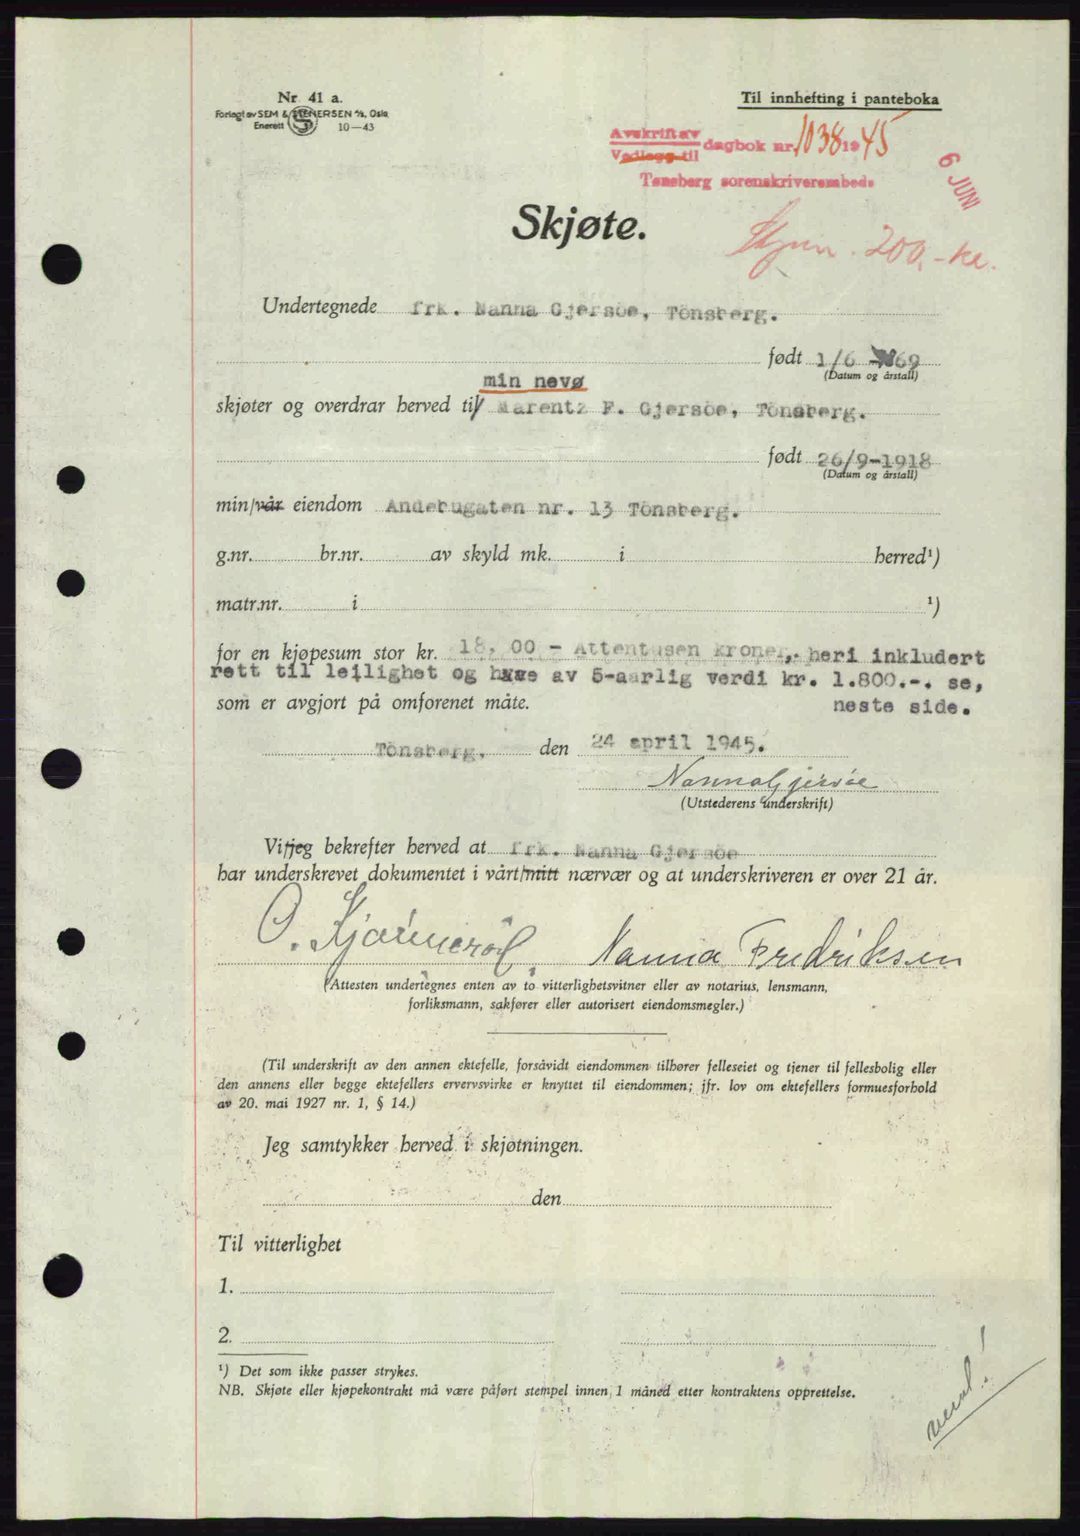 Nr. 41 a.
Forlagt av SEM & STENERSEN A/S, Oslo
Enerett 10—43
Til innhefting i panteboka
Avskrift av
Vedlegg til dagbok nr. 1038 1945
Tønsberg sorenskriverembede
6 JUNI
Skjøte.
200,- kr.
Undertegnede frk. Nanna Gjersöe, Tönsberg.
født 1/6 - 69
(Datum og årstall)
min nevø
skjøter og overdrar herved til/ Marentz F. Gjersöe, Tönsberg.
født 26/9-1918
(Datum og årstall)
min/vår eiendom Andebugaten nr. 13 Tönsberg.
g.nr. br.nr. av skyld mk. i herred¹)
matr.nr. i ¹)
for en kjøpesum stor kr. 18, 00 - Attentusen kroner,. heri inkludert
rett til leilighet og have av 5-aarlig verdi kr. 1.800.-. se,
som er avgjort på omforenet måte. neste side.
Tönsberg, den 24 april 1945.
Nanna Gjersöe
(Utstederens underskrift)
Vi/jeg bekrefter herved at frk. Nanna Gjersöe
har underskrevet dokumentet i vårt/mitt nærvær og at underskriveren er over 21 år.
O. Nanna Fredriksen
(Attesten undertegnes enten av to vitterlighetsvitner eller av notarius, lensmann,
forliksmann, sakfører eller autorisert eiendomsmegler.)
(Til underskrift av den annen ektefelle, forsåvidt eiendommen tilhører felleseiet og tjener til fellesbolig eller
den annens eller begge ektefellers ervervsvirke er knyttet til eiendommen; jfr. lov om ektefellers formuesforhold
av 20. mai 1927 nr. 1, § 14.)
Jeg samtykker herved i skjøtningen.
den
Til vitterlighet
1.
2.
¹) Det som ikke passer strykes.
NB. Skjøte eller kjøpekontrakt må være påført stempel innen 1 måned etter kontraktens opprettelse.
vend!